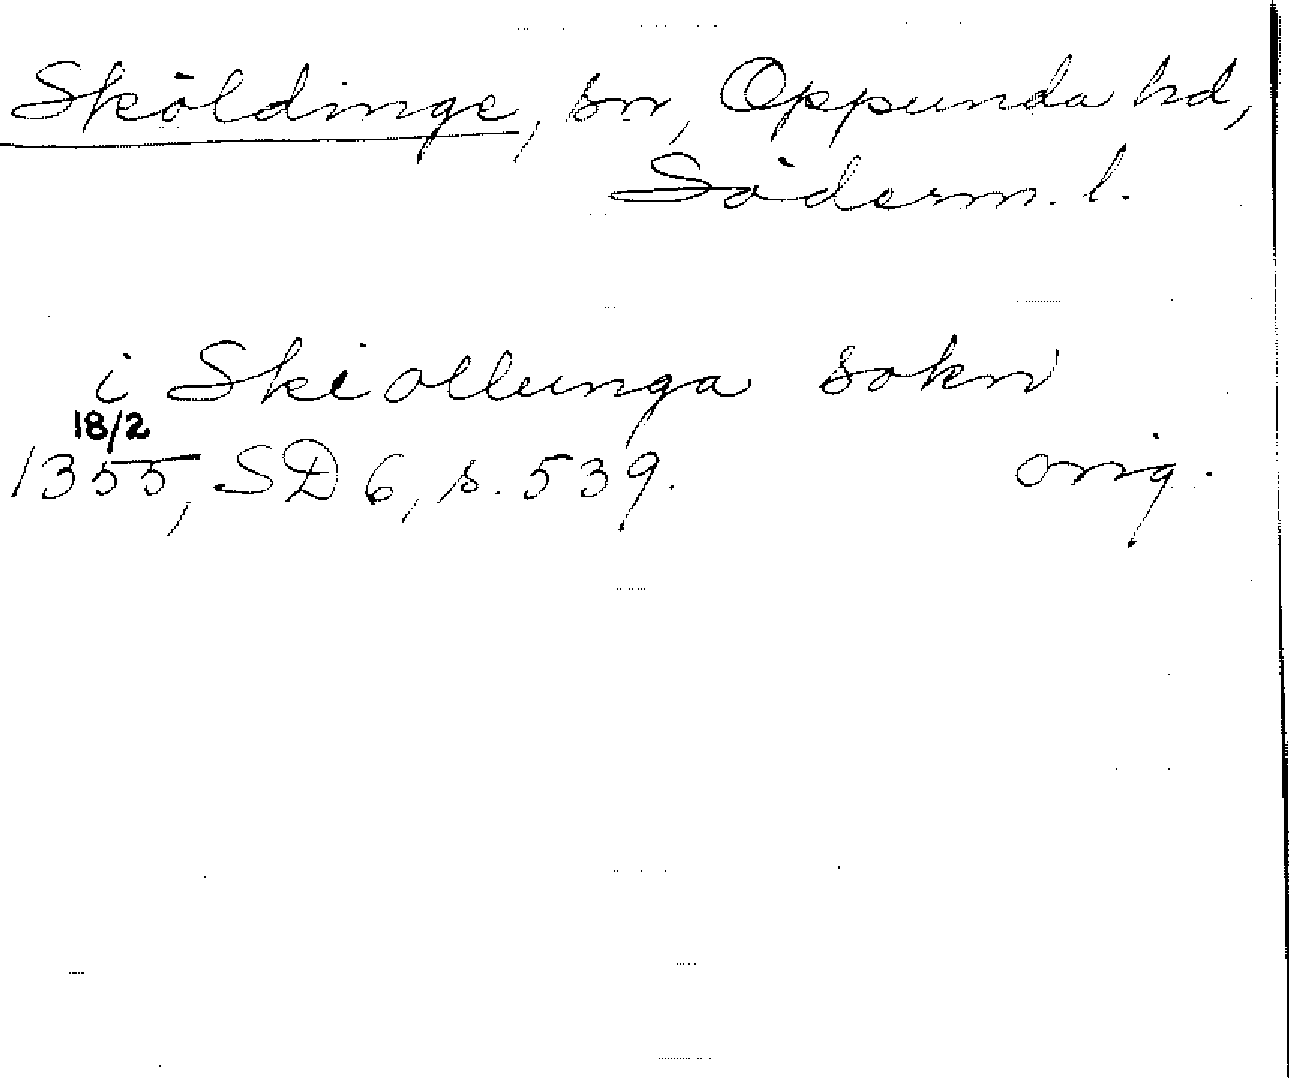 Sköldinge, sn, Oppunda hd,
Söderm. l.
i Skiollunga sokn
18/2
1355, SD 6, s. 539. orig.